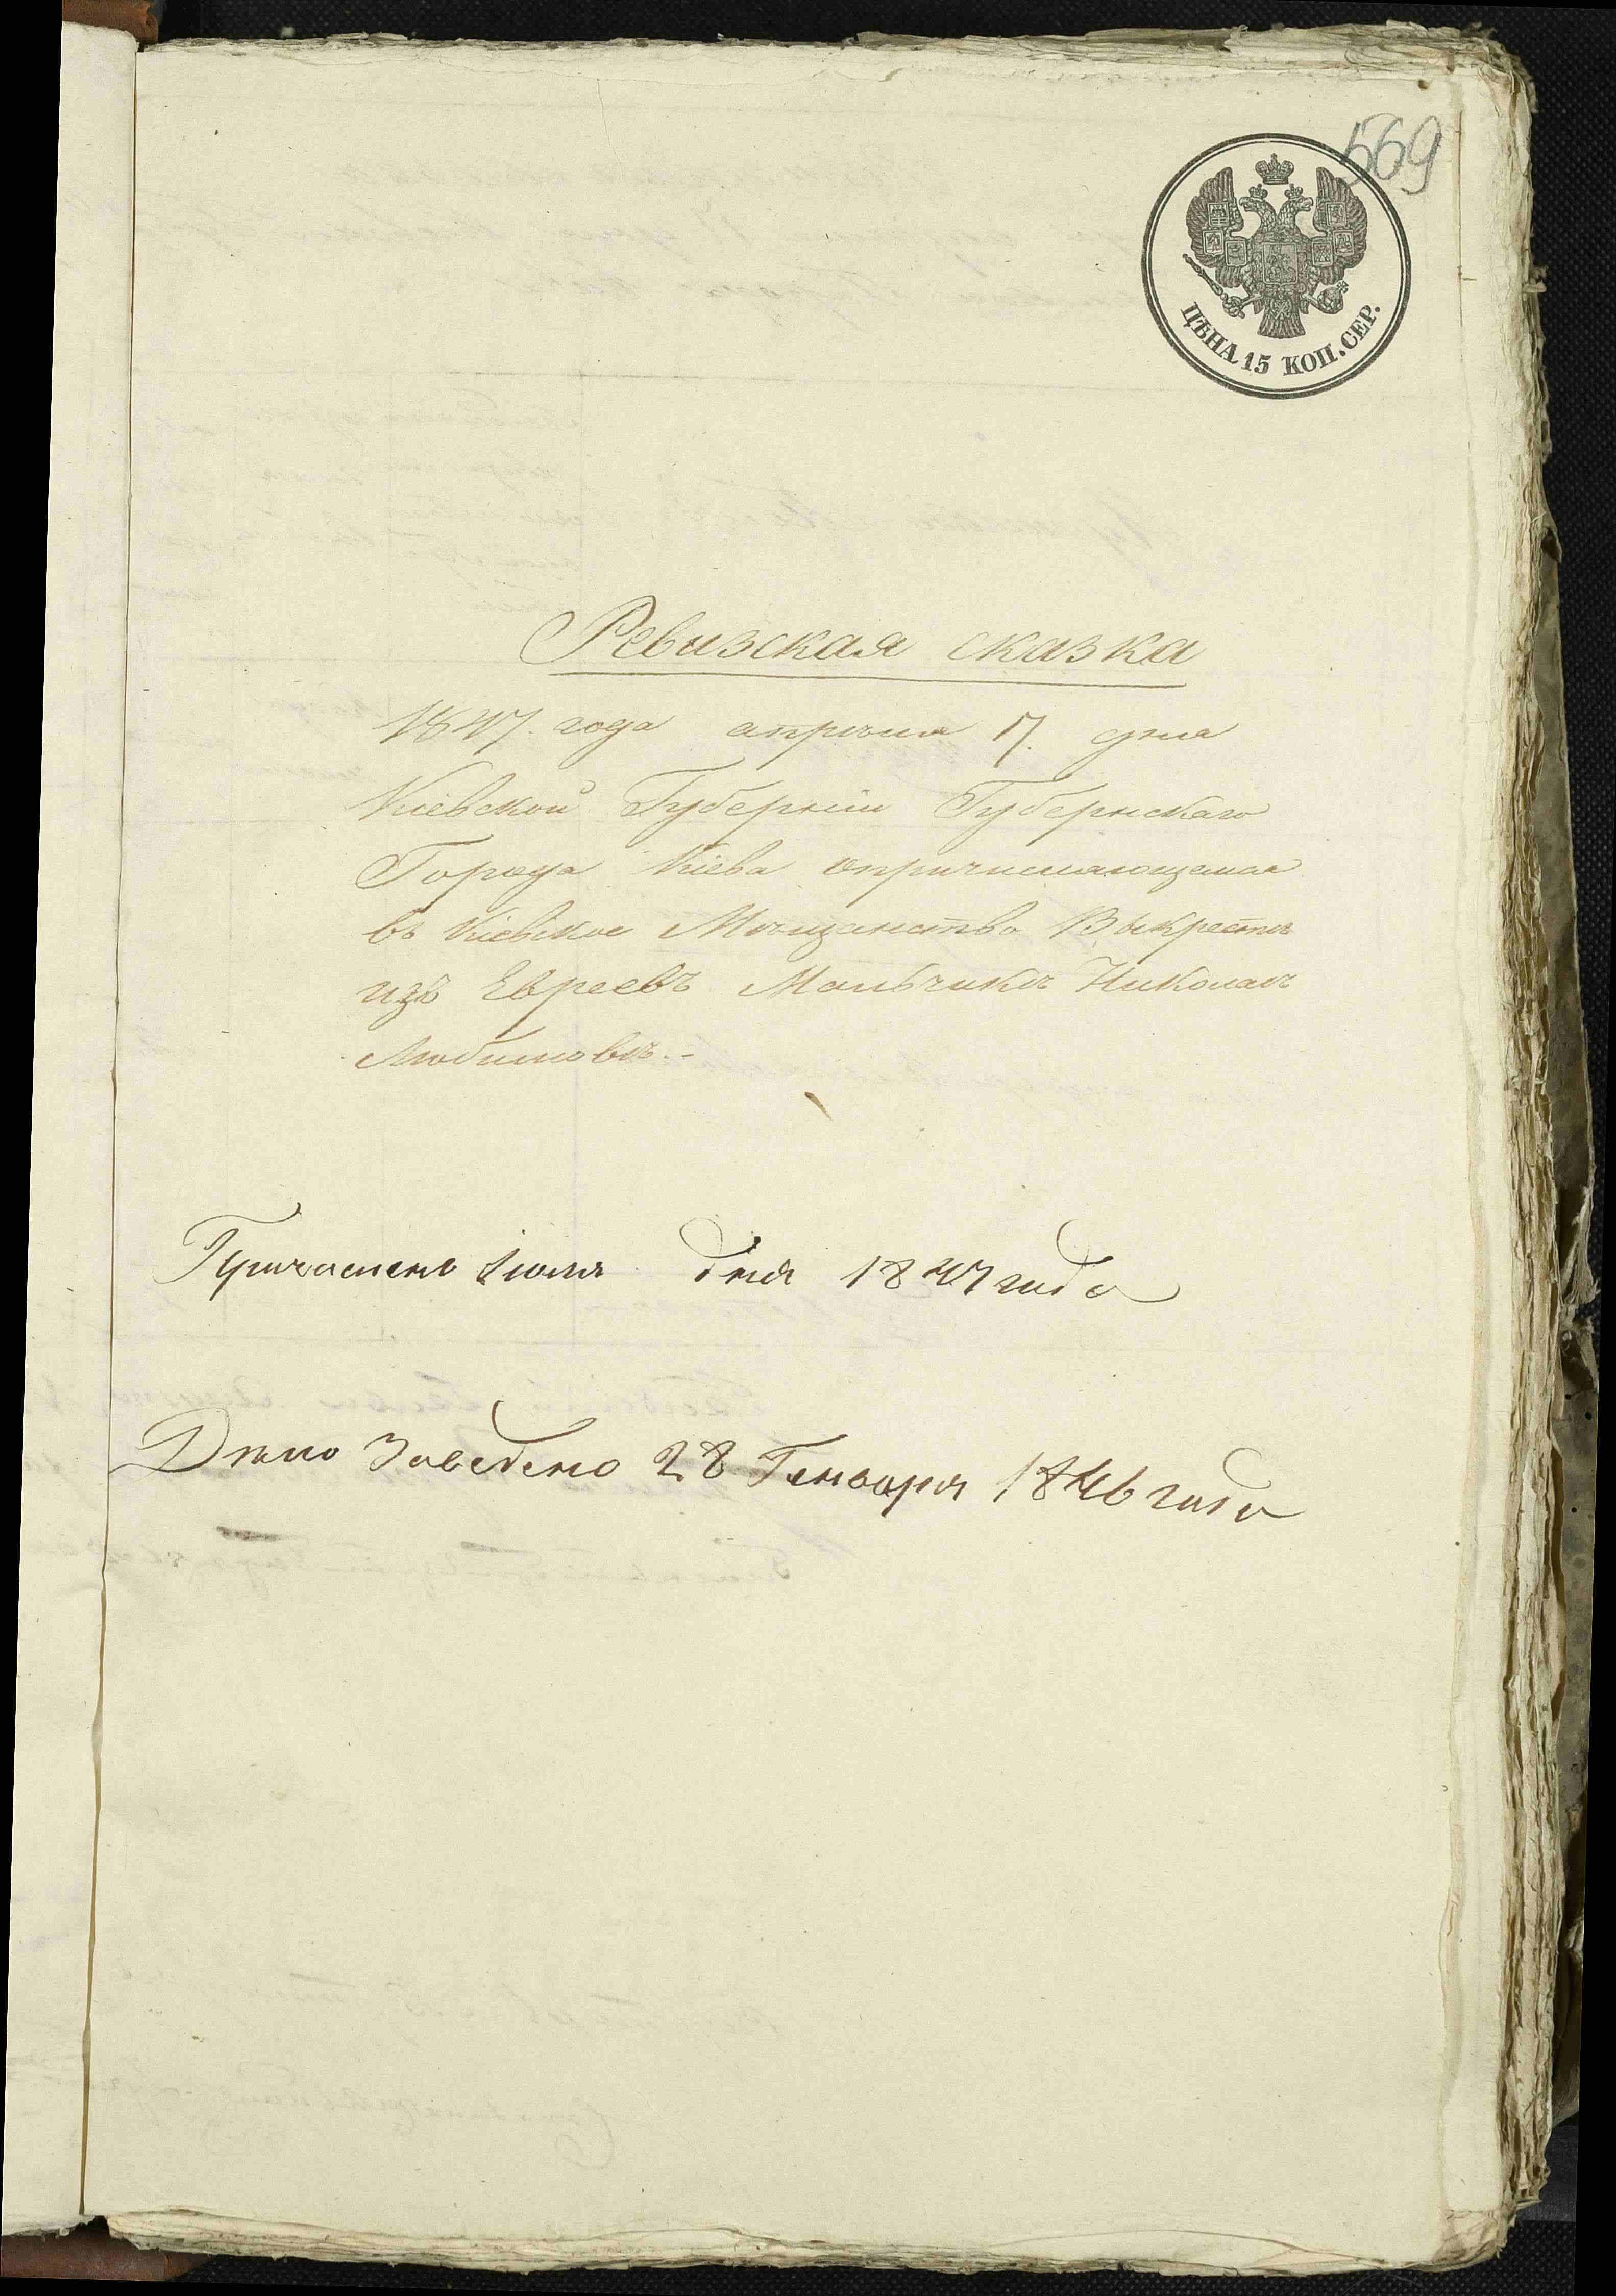 569
ЦѢНА 15 КОП. СЕР.
Ревизская сказка
1847. года апрѣля 17. дня
Кіевской Губерніи Губернскаго
Города Кіева опричисляющемся
въ Кіевское Мѣщанство Выкрестѣ
изъ Евреевъ Мальчикѣ Николаѣ
Любимовѣ.-
Причисленъ Іюля дня 1847 года
Дѣло Заведено 28 Генваря 1846 года